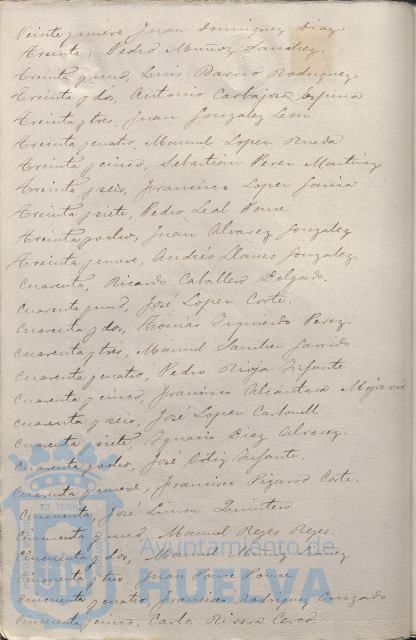 Veinte y nueve, Juan Dominguez Diaz.
Treinta, Pedro Muñoz Sanchez.
Treinta y uno, Luis Barrio Rodriguez
Treinta y dos, Antonio Carbajosa
Treinta y tres, Juan Gonzalez Leon
Treinta y cuatro, Manuel Lopez Rueda
Treinta y cinco, Sebastián Perez Martinez
Treinta y seis, Francisco Lopez Garcia
Treinta y siete, Pedro Leal Ponce
Treinta y ocho, Juan Alvarez Gonzalez
Treinta y nueve, Andrés Llanes Gonzalez.
Cuarenta, Ricardo Caballero Delgado.
Cuarenta y uno, José Lopez Corte.
Cuarenta y dos, Tomás Izquierdo Perez.
Cuarenta y tres, Manuel Sanchez Garrido
Cuarenta y cuatro, Pedro Rioja Infante
Cuarenta y cinco, Francisco Alcántara Mojarro
Cuarenta y seis, José Lopez Carbonell
Cuarenta y siete, Ignacio Diaz Alvarez.
Cuarenta y ocho, José Ortiz Infante.
Cuarenta y nueve, Francisco Pizarro Corte.
Cincuenta, José Limon Quintero
Cincuenta y uno, Manuel Reyes Reyes.
Cincuenta y dos, Manuel
Cincuenta y tres, Juan Ponce Ponce
Cincuenta y cuatro, Francisco Rodriguez
Cincuenta y cinco, Carlos Rivera
Ayuntamiento de
HUELVA